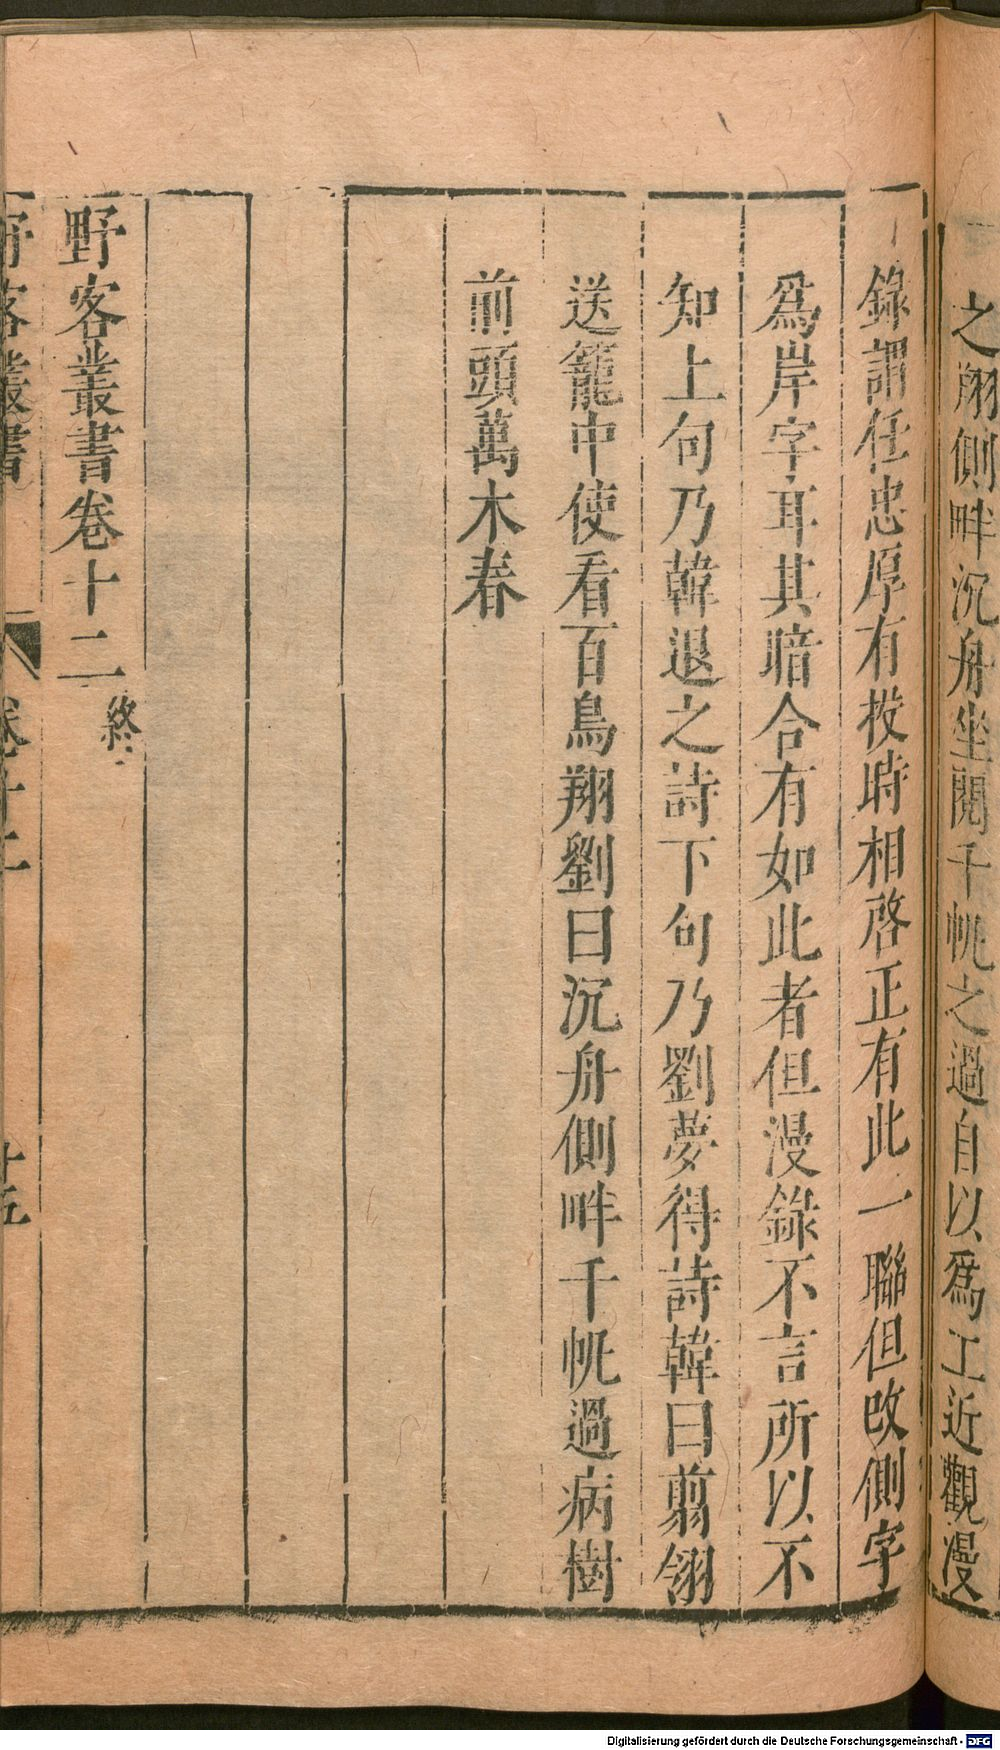 之翔側畔沉舟坐閱千帆之過自以爲工近觀漫
錄謂任忠厚有投時相啓正有此一聯但改側字
爲岸字耳其暗合有如此者但漫錄不言所以不
知上句乃韓退之詩下句乃劉夢得詩韓曰翦翎
送籠中使看百鳥翔劉曰沉舟側畔千帆過病樹
前頭萬木春
野客叢書卷十二終
野客叢書 卷十二 十五
Digitalisierung gefördert durch die Deutsche Forschungsgemeinschaft - DFG